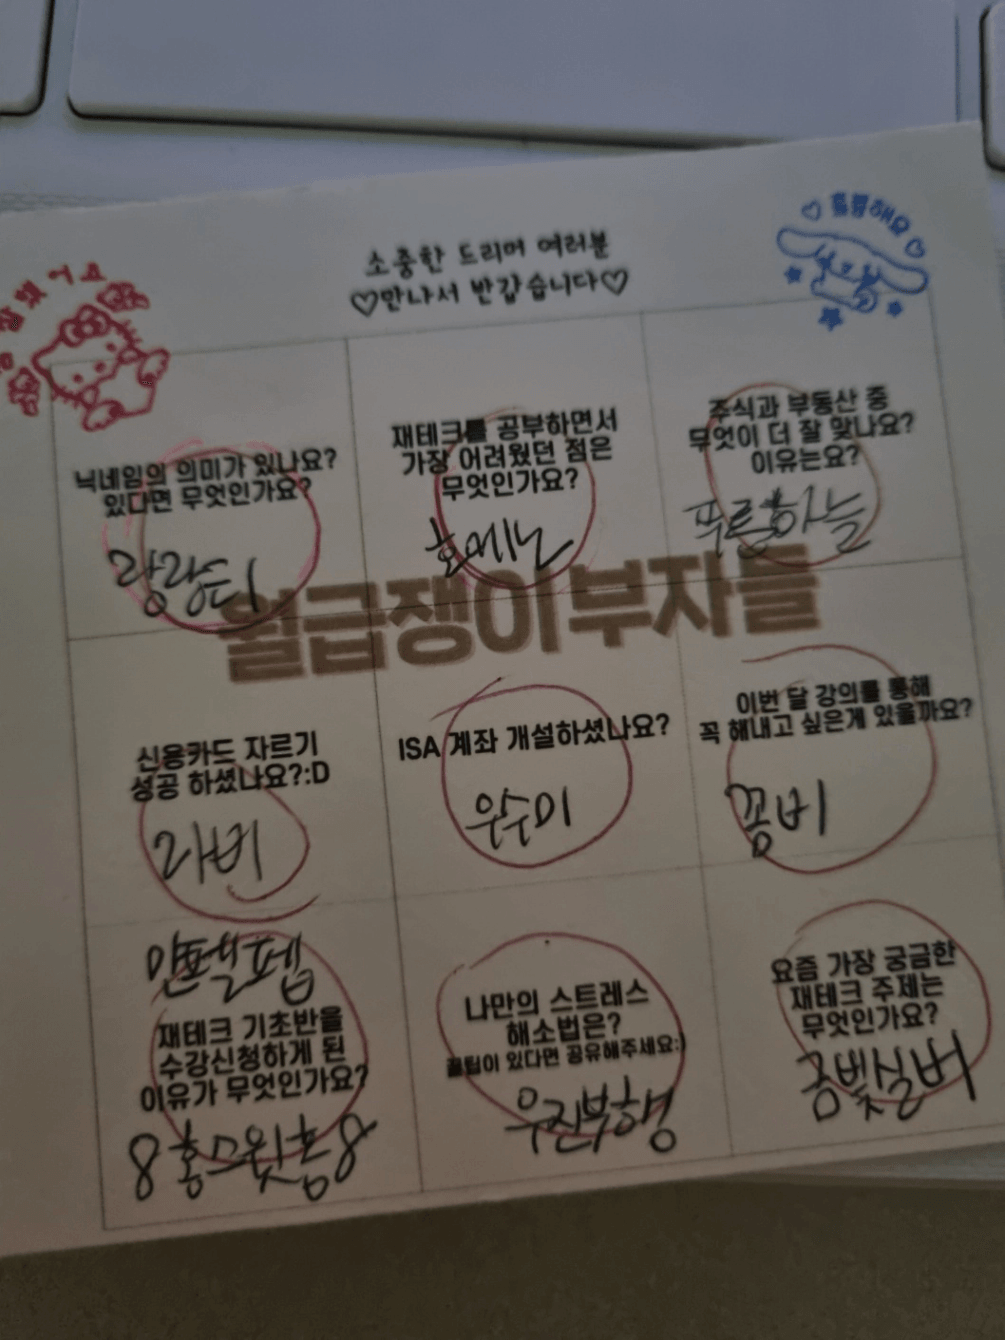 훌륭해요
소중한 드리머 여러분
♡만나서 반갑습니다♡
닉네임의 의미가 있나요?
있다면 무엇인가요?
랑랑드
재테크를 공부하면서
가장 어려웠던 점은
무엇인가요?
주식과 부동산 중
무엇이 더 잘 맞나요?
이유는요?
푸릉하늘
월급쟁이부자들
신용카드 자르기
성공 하셨나요?:D
라비
ISA 계좌 개설하셨나요?
우수미
이번 달 강의를 통해
꼭 해내고 싶은게 있을까요?
꽁비
재테크 기초반을
수강신청하게 된
이유가 무엇인가요?
나만의 스트레스
해소법은?
꿀팁이 있다면 공유해주세요:)
우진부행
요즘 가장 궁금한
재테크 주제는
무엇인가요?
금빛실버